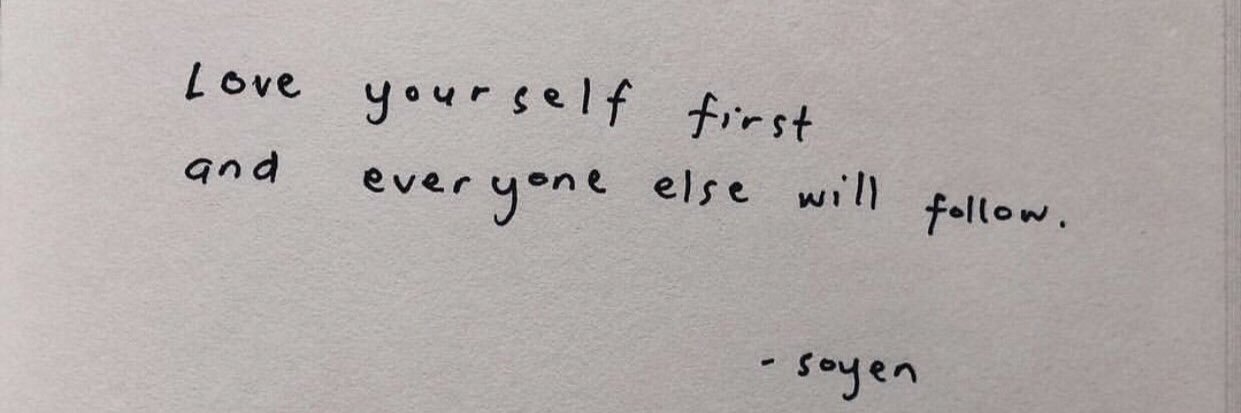 Love yourself first
and everyone else will follow.
- soyen